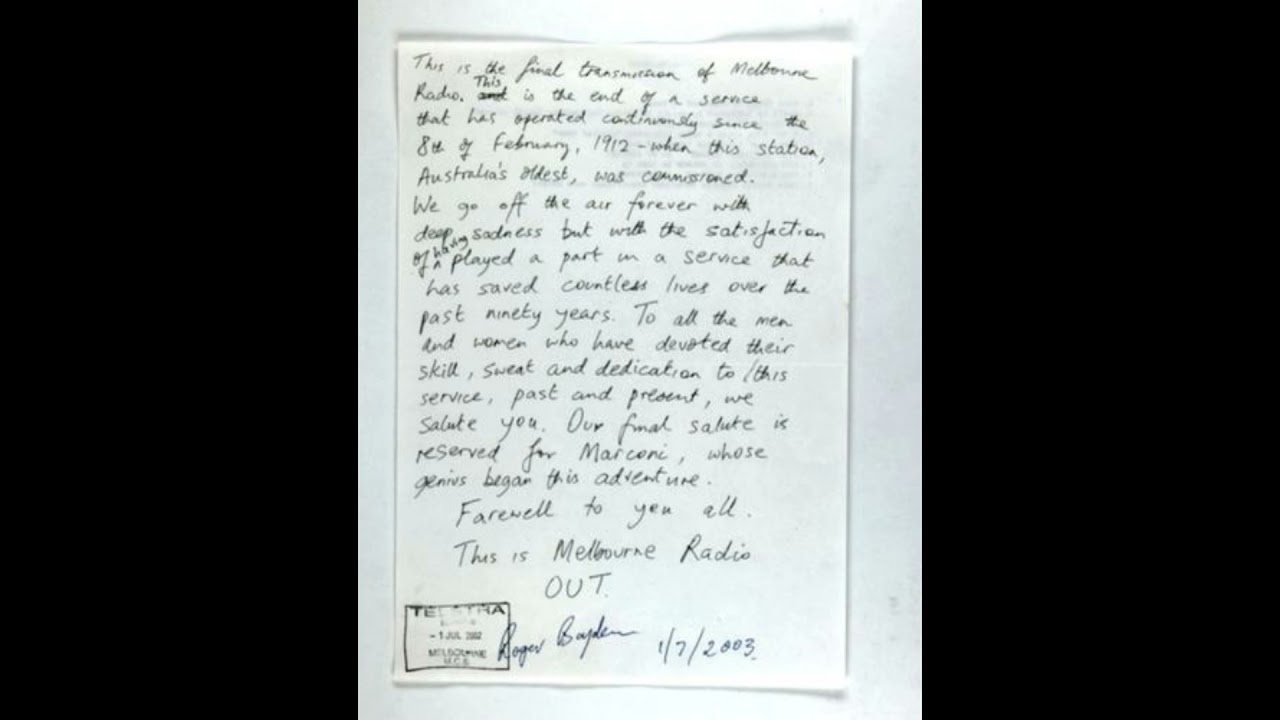 This is the final transmission of Melbourne
Radio. This is the end of a service
that has operated continuously since the
8th of February, 1912 - when this station,
Australia's oldest, was commissioned.
We go off the air forever with
deep sadness but with the satisfaction
of having played a part in a service that
has saved countless lives over the
past ninety years. To all the men
and women who have devoted their
skill, sweat and dedication to this
service, past and present, we
salute you. Our final salute is
reserved for Marconi, whose
genius began this adventure.
Farewell to you all.
This is Melbourne Radio
OUT.
TELSTRA
- 1 JUL 2002
MELBOURNE
Roger 1/7/2003.